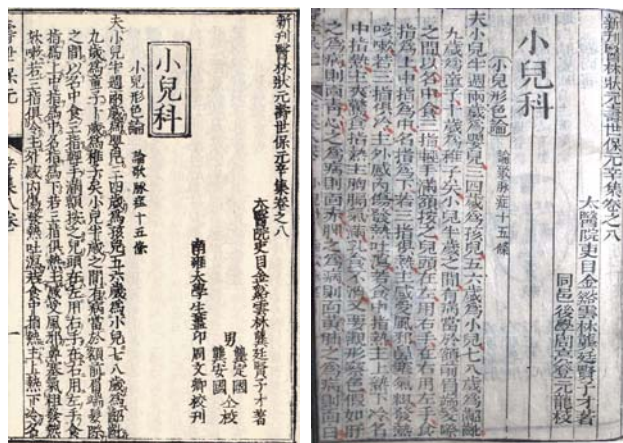 新刊醫林狀元壽世保元辛集卷之八
太醫院吏目金谿雲林龔廷賢子才著
男 龔定國 龔安國 仝校
南雍太學生 印周文卿校刊
小兒科
小兒形色論 論歌脉症十五條
夫小兒半週兩歲爲嬰兒三四歲爲孩兒五六歲爲小兒七八歲爲齠齔
九歲爲童子十歲爲稚子矣小兒半歲之間有病當於額前眉端髮際
之間以名中食三指輕手滿額按之兒頭在左用右手在右用左手食
指爲上中指爲中名指爲下若三指俱熱主感受風邪鼻塞氣粗發熱
咳嗽若三指俱冷主外感內傷發熱吐瀉若食中指熱主上熱下冷名
壽世保元 辛集八卷 一
新刊醫林狀元壽世保元辛集卷之八
太醫院吏目金谿雲林龔廷賢子才著
同邑後學周亮登元龍校
小兒科
小兒形色論 論歌脉症十五條
夫小兒半週兩歲爲嬰兒三四歲爲孩兒五六歲爲小兒七八歲爲齠齔
九歲爲童子十歲爲稚子矣小兒半歲之間有病當於額前眉端髮際
之間以名中食三指輕手滿額按之兒頭在左用右手在右用左手食
指爲上中指爲中名指爲下若三指俱熱主感受風邪鼻塞氣粗發熱
咳嗽若三指俱冷主外感內傷發熱吐瀉若食中指熱主上熱下冷名
中指熱主夾驚食指熱主胸膈氣滿乳食不消又要觀形察色假如肝
之爲病則面青心之爲病則面赤脾之爲病則面黃肺之爲病則面白